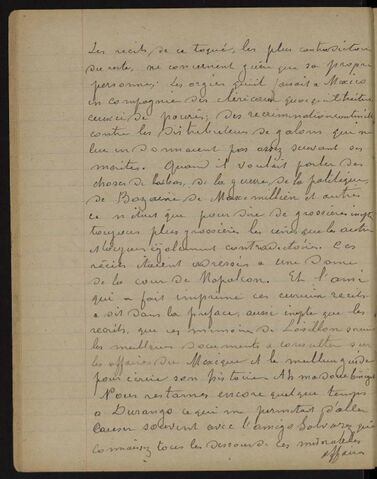 Les récits de ce toqué, les plus contradictoires
du reste, ne concernent guère que sa propre
personne; Les orgies qu'il faisait a Mexico
en compagnie des cléricaux quoiqu'il traitat
ceux ci de; des recriminations continuelles
contre les distributeurs de galons qui ne
lui en donnaient pas assez suivant ses
mérites. Quand il voulait parler des
choses de labas, de la guerre, de la politique,
de Bazaine de Maximilien et autres
ce n'était que pour dire de grossières inepties
toujours plus grossières les unes que les autres
et toujours également contradictoires. Ces
récits étaient adressés a une Dame
de la cour de Napoléon. Et l'ami
qui a fait imprimé ces curieux recits
a dit dans la preface, aussi inepte que les
recits, que ces memoires de Loisillon sont
les meilleurs documents a consulter sur
les affaires du Mexique et le meilleur guide
pour écrire son histoire Ah ma doué
Nous restames encore quelque temps
a Durango ce qui me permettait d'aller
causer souvent avec l'amigo qui
connaissez tous les dessous de ces misérables
affaires